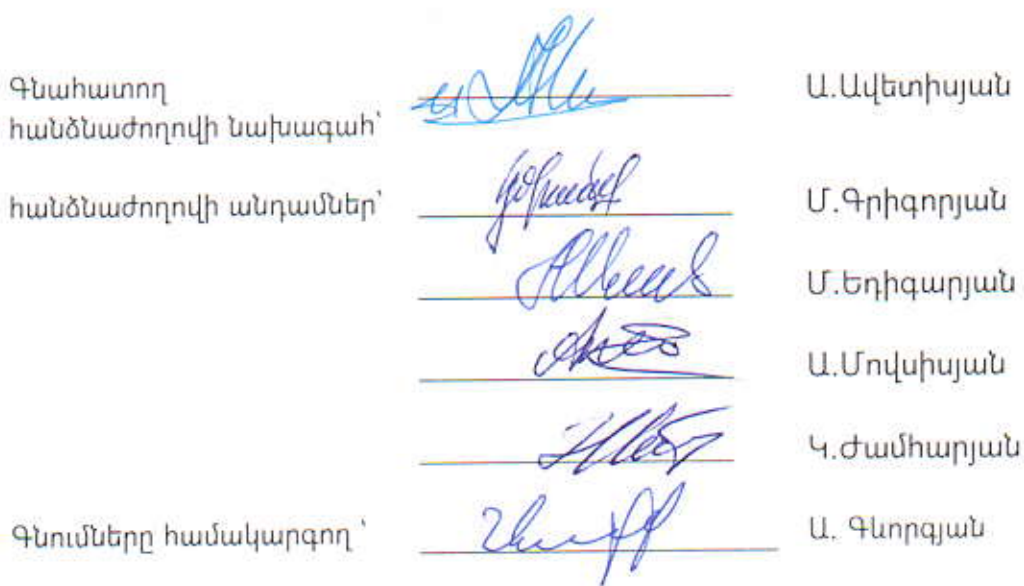 Գնահատող
հանձնաժողովի նախագահ՝ Ա.Ավետիսյան
հանձնաժողովի անդամներ՝ Մ.Գրիգորյան
Մ.Եդիգարյան
Ա.Մովսիսյան
Կ.Ժամհարյան
Գնումները համակարգող ՝ Ա. Գևորգյան